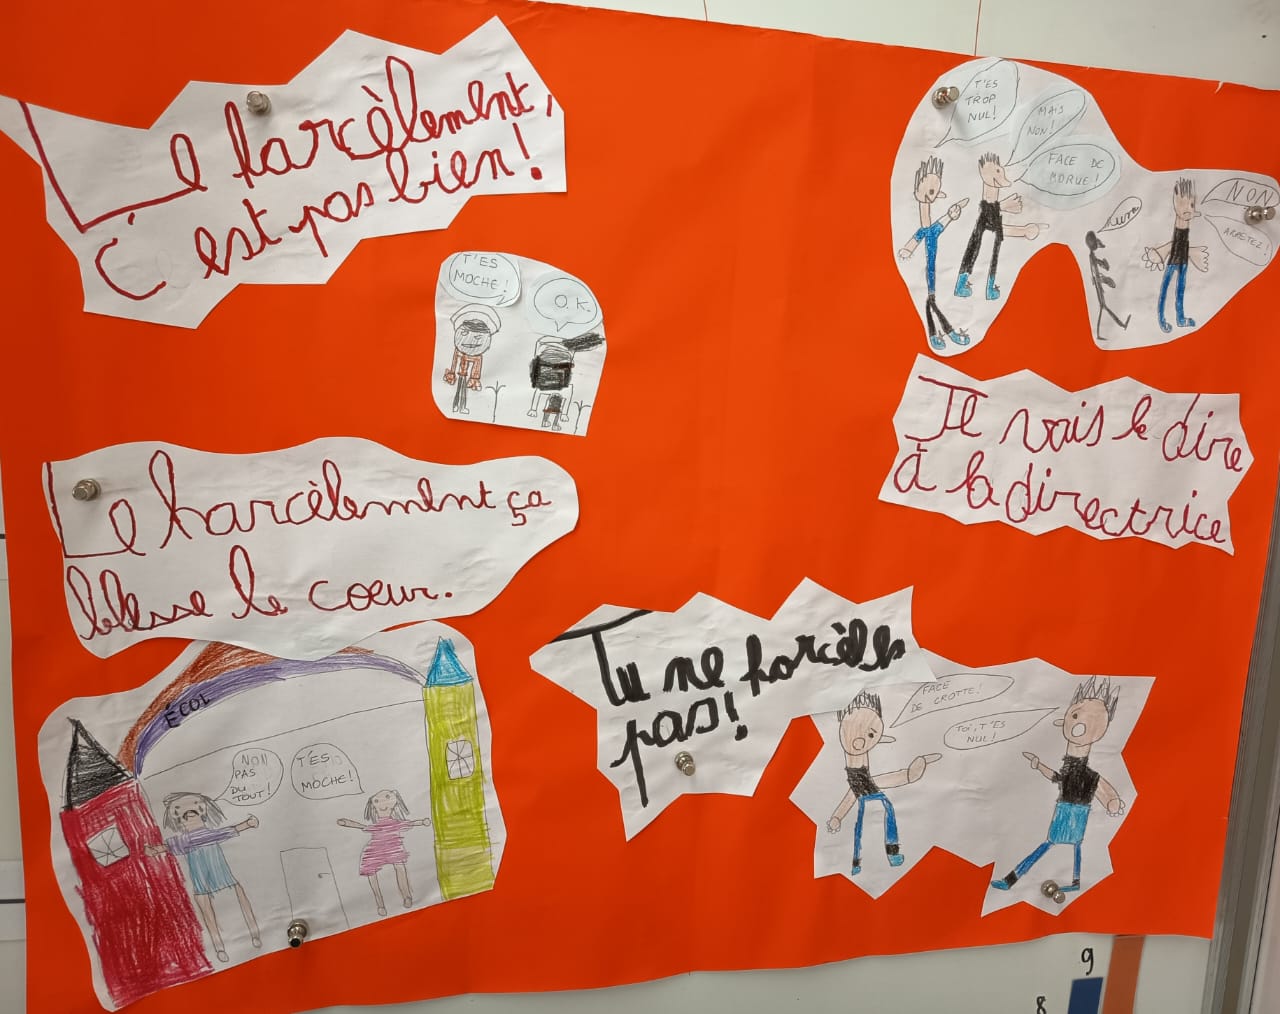 Le harcèlement,
C'est pas bien!
T'ES
MOCHE!
O.K.
Le harcèlement ça
blesse le coeur.
ÉCOL
NON
PAS
DU
TOUT!
T'ES
MOCHE!
T'ES
TROP
NUL!
MAIS
NON!
FACE DE
MORUE!
NON
ARRÊTEZ!
Je vais le dire
à la directrice
Tu ne harcèles
pas!
FACE
DE CROTTE!
TOI, T'ES
NUL!
9
8